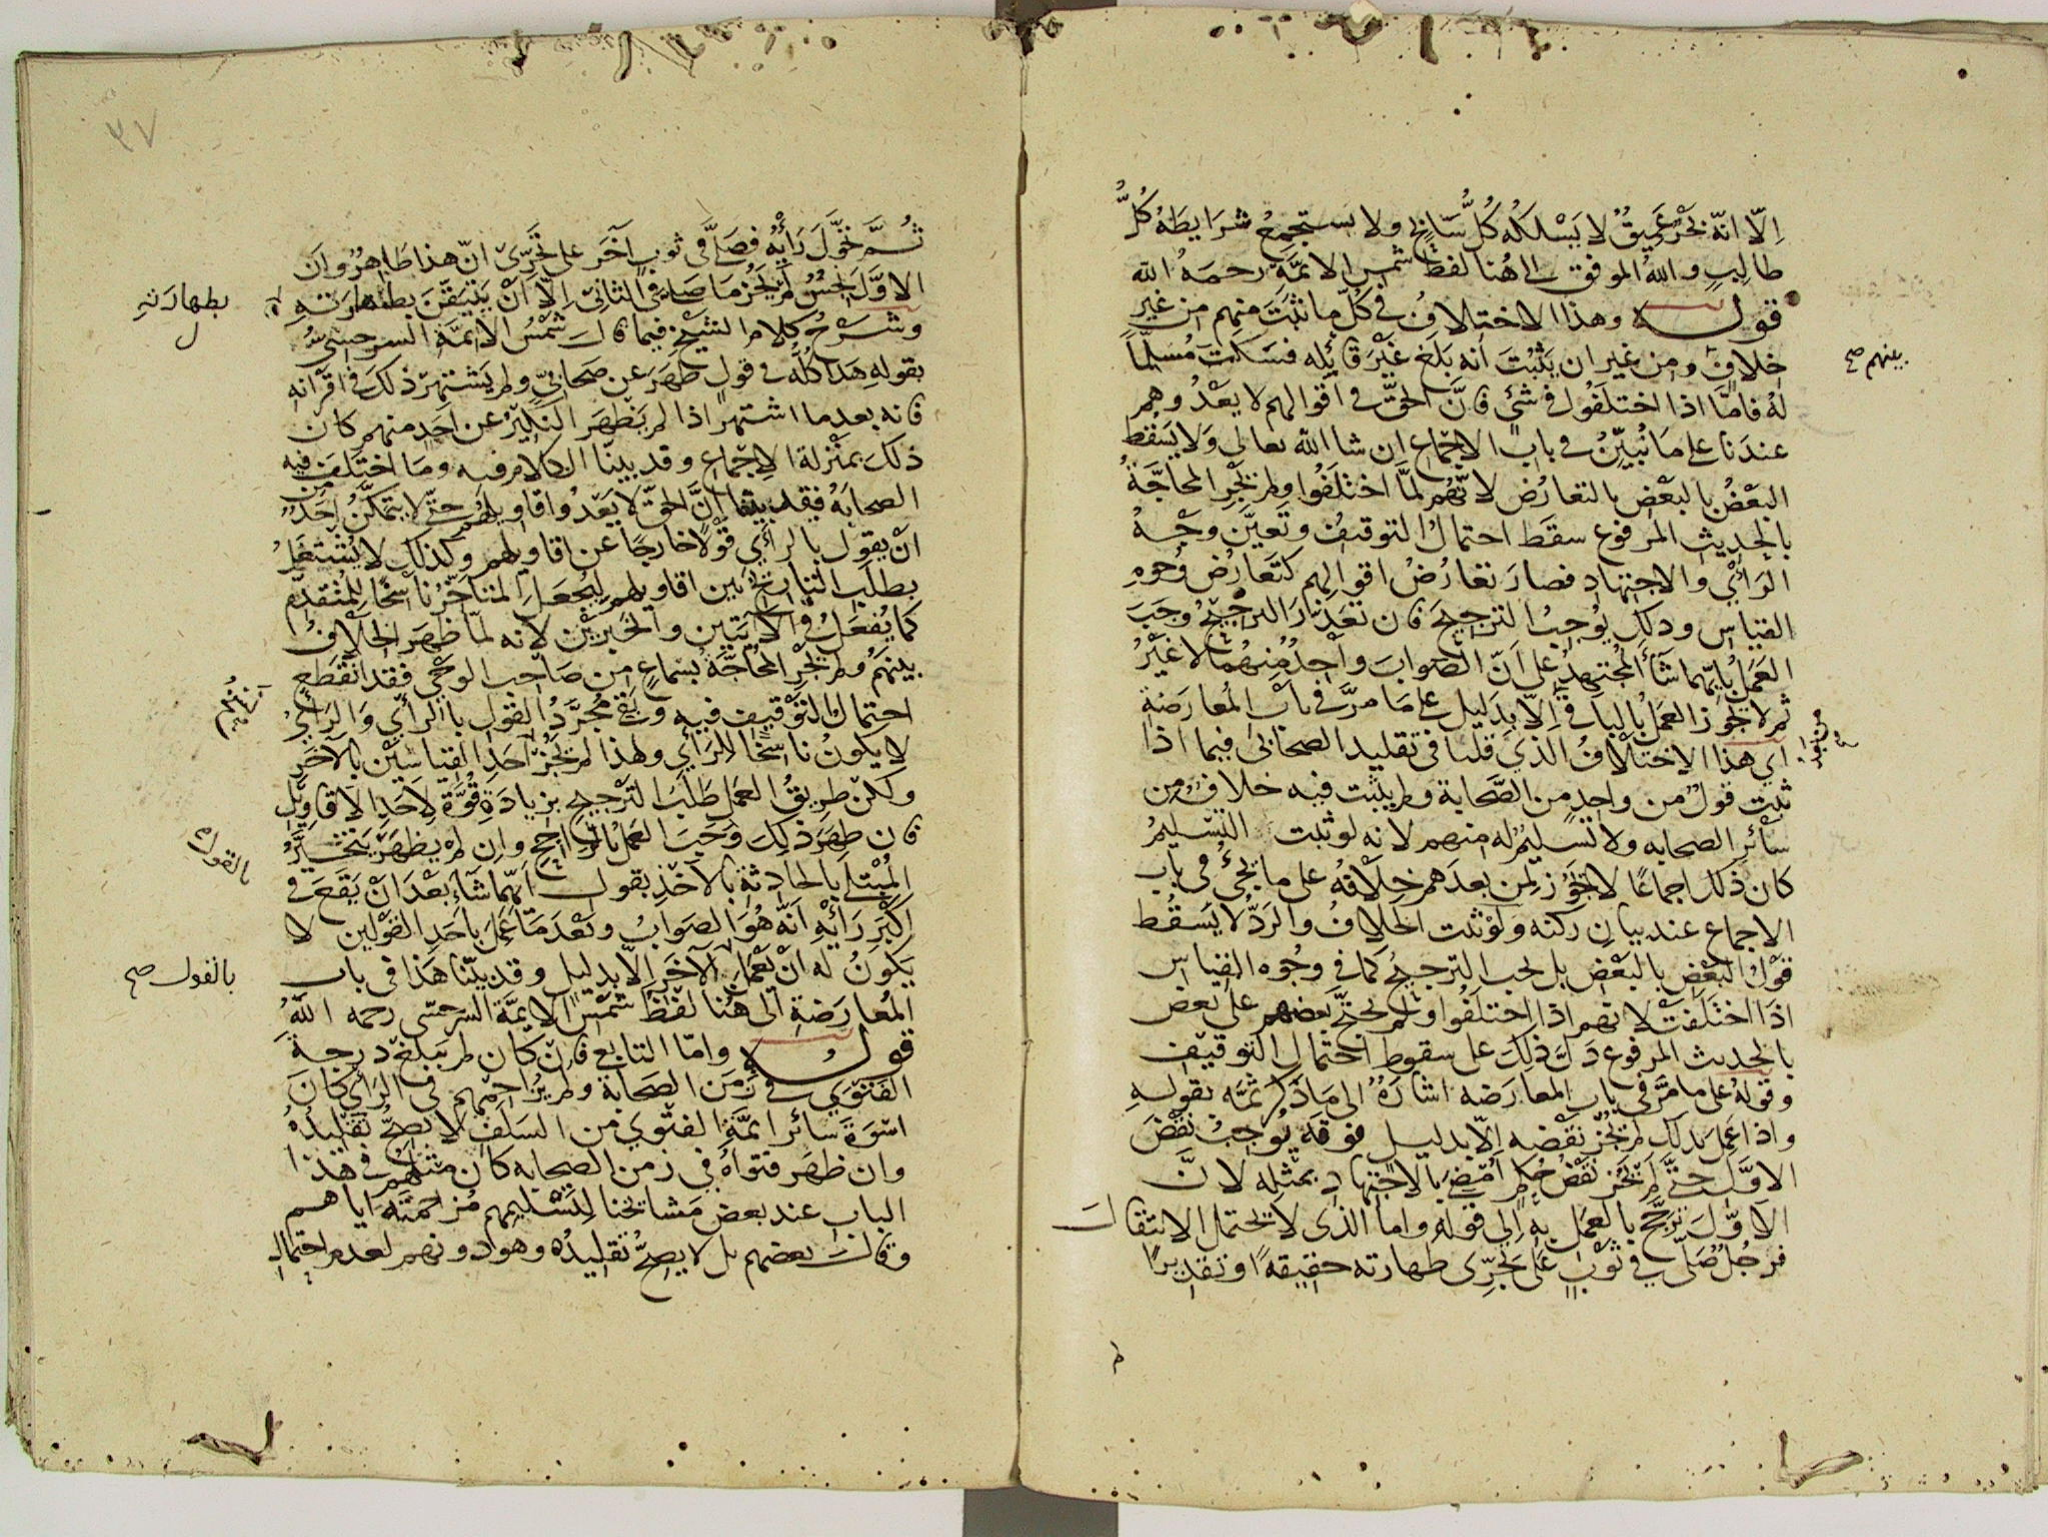 الّا انّه بَحْرٌ عَمِيقٌ لا يَسْلكُه كُلُّ سَابِحٍ ولا يستجمعُ شرَايطَهُ كُلُّ
طالِبٍ واللهُ الموفق الى هُنا لفظ شمس الايمَّةِ رحمَهُ الله
قوله وهذا الاختلافُ في كُلّ ما ثبَتَ منهم من غير
خلافٍ ومن غير ان يَثبُتَ انه بَلغ غَيْرَ قائله فسَكَتَ مُسَلِّماً
بينهم صح
لهُ فامّا اذا اختلَفُوا في شئٍ فانَّ الحقَّ في اقوالهم لا يَعْدُوهم
عندَنا على مَا نُبيِّنُ في باب الاجماع ان شا الله تعالى ولا يَسْقُط
البَعْضُ بالبَعْض بالتعارُض لانّهُم لَمَّا اختلَفُوا ولم تَجْرِ المحاجَّةُ
بالحديث المرفوع سقَط احتمالُ التوقيف وتَعيَّن وجْهُ
الرَأْيِ والاجتهاد فصارَ تعارُضُ اقوالِهم كتَعارُض وُجوهِ
القياس وذلك يُوجبُ الترجيحَ فان تعَذرَ الترجيحُ وجَبَ
العَمَلُ بايّهما شاءَ المُجتهدُ على اَنّ الصّوابَ واحِدٌ منهُما لا غَيْرُ
ثم لا يجوز العمَلُ بالباقي الّا بِدَليل على مَا مرَّ في باب المُعارضَةِ
اي هذا الاختلافُ الذي قلنا في تقليد الصحابي فيما اذا
ثبت قولٌ من واحدٍ من الصَّحابة ولم يثبت فيه خلافٌ من
سائر الصحابه ولا تسليمٌ له منهم لانه لو ثبت التسليمُ
كان ذلك اجماعًا لا يجوز لمن بعدَهم خِلافُه على ما يجئُ في باب
الاجماع عند بيان ركنه ولو ثبت الخلافُ والرَدُّ لا يَسقُط
قولُ البَعْضِ بالبَعْض بل يجب الترجيحُ كما في وجُوه القياس
اذَا اختَلَفَتْ لانّهم اذا اختلَفُوا ولم يحتجَّ بعضهم على بعض
بالحديث المرفوع دَلّ ذلِكَ على سقوط احتمال التوقيف
وقولهُ على ما مَرَّ في باب المعارضه اشارَةٌ الى مَا ذَكَرَ ثمَّه بقولهِ
واذا عَمِلَ بذلك لم يَجُزْ نَقْضه الّا بدليل فوقَه يُوجِبُ نَقْضَ
الاوَّل حتَّى لم يَجُز نقْضُ حُكمٍ اُمضِيَ بالاجتهاد بمثلِه لانَّ
الاوّلَ ترَجَّح بالعمَل به الى قوله واما الذي لا يحتمل الانتقال
فرجُلٌ صَلّى في ثوْبٍ عَلى تَحرِّى طهارته حقيقةً او تقديرًا
ثُمَّ تحَوَّلَ رَأيُه فصَلَّى في ثوبٍ آخَر على تَحَرِّيْ انّ هذا طَاهِرٌ وان
الاوَّلَ نَجِسٌ لم يَجُزْ ما صَلّى في الثانيّ الّا اَنْ يَتيَقَّنَ بطهارَتِهِ
بطهارَتهِ
ل
وشَرْحُ كلام الشيْخ فيما قال شَمْسُ الايمَّة السرخسيُّ
بقولهِ هَذا كُلُّه في قولٍ ظهَرَ عن صَحابيٍّ ولم يَشتهرْ ذلكَ في اقرَانه
فانه بعدما اشتهر اذا لم يَظهَر النّكيرُ عن اَحدٍ منهم كان
ذلكَ بمنْزلة الاِجماع وقد بيّنا الكلام فيه ومَا اختلَف فيه
الصحابَةُ فقد بيّنا انَّ الحقّ لا يَعْدُو اقاويلَهُم حتّى لا يتمكّنُ احَدٌ مِن
انْ يقول بالرأي قوْلًا خارجًا عن اقاويلهم وكذلك لا يُشتغَلُ
بطلَب التاريخ بَين اقاويلهم ليُجعَلَ المتاَخّرُ ناسخًا للمُتقدِّم
كما يُفعَلُ في الآيتَين والخَبرَيْن لأنه لمّا ظهَر الخلافُ
بينهمُ ولم تَجْرِ المُحاجَّةُ بسَماعٍ من صَاحب الوَحْي فقد انقَطع
احتمالُ التَّوْقيف فيه وبَقِيَ مُجرَّدُ القول بالرأيِ والرَأيُ
لا يكونُ ناسخًا للرَأي ولهذا لم يَجُزْ اَحَدُ القياسَيْن بالآخَر
ولكنْ طريقُ العَمل طَلبُ الترجيحِ بزيادَةِ قُوَّةٍ لاَحَد الاَقاويْل
فان ظهَرَ ذلِكَ وَجَبَ العَملُ بالرَّاجح وان لم يظهَرْ يَتخَيَّرُ
المُبْتلَى بالحَادثةِ بالاَخْذِ بقول ايّهما شَآءَ بَعْدَ انْ يَقَعَ في
اَكْبَر رَأيْهِ اَنَّه هُوَ الصَوابُ وبَعْدَ مَا عَمِلَ باَحَد القوْلَين لا
يَكونُ له انْ يَعْمَلَ بالآخَر الّا بدليل وقد بيّنّا هَذا في باب
بالقول صح
المُعارَضةِ الى هُنا لفْظ شمْسُ الايمَّة السَرخسى رحمه اللهُ
قوله وامّا التابعى فانْ كان لم يَبلغ درجةَ
الفتْوَى في زَمَن الصَحابة ولم يُزاحِمْهم في الرَأي كانَ
اسْوَةَ سائر ايمَّة الفتْوي من السَلف لا يَصحُّ تَقليدُهُ
وان ظهَر فتواهُ في زمن الصحابه كان مثلَهم في هذا
الباب عند بعض مَشايخنا لِتَسْليمِهم مُزاحمَتَه اياهم
وقال بعضهم بل لا يصحُّ تقليدُه وهو دونهم لعدم احتمال